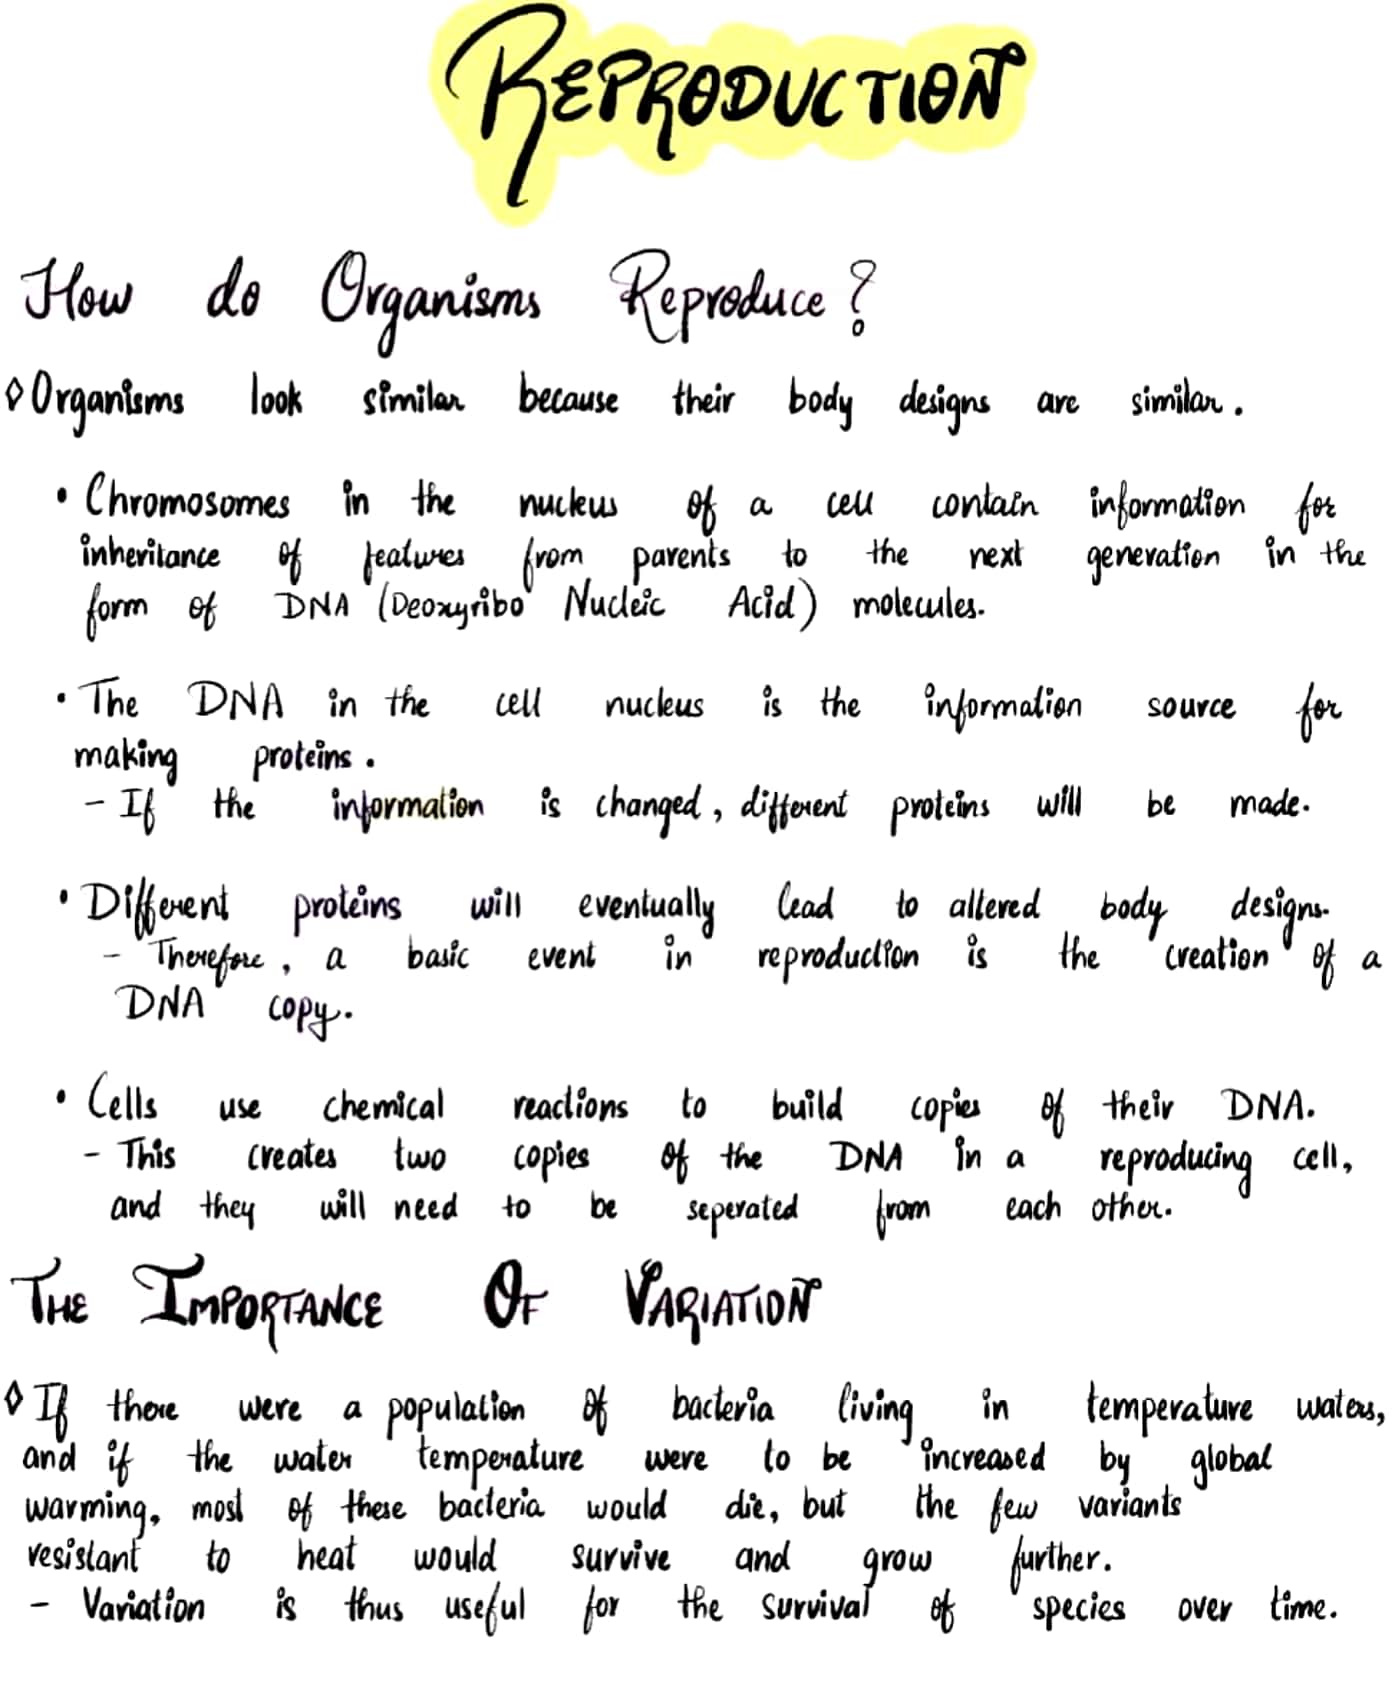 REPRODUCTION
How do Organisms Reproduce?
◊ Organisms look similar because their body designs are similar.
• Chromosomes in the nucleus of a cell contain information for
inheritance of features from parents to the next generation in the
form of DNA (Deoxyribo Nucleic Acid) molecules.
• The DNA in the cell nucleus is the information source for
making proteins.
- If the information is changed, different proteins will be made.
• Different proteins will eventually lead to altered body designs.
- Therefore, a basic event in reproduction is the creation of a
DNA copy.
• Cells use chemical reactions to build copies of their DNA.
- This creates two copies of the DNA in a reproducing cell,
and they will need to be seperated from each other.
THE IMPORTANCE OF VARIATION
◊ If there were a population of bacteria living in temperature waters,
and if the water temperature were to be increased by global
warming, most of these bacteria would die, but the few variants
resistant to heat would survive and grow further.
- Variation is thus useful for the survival of species over time.